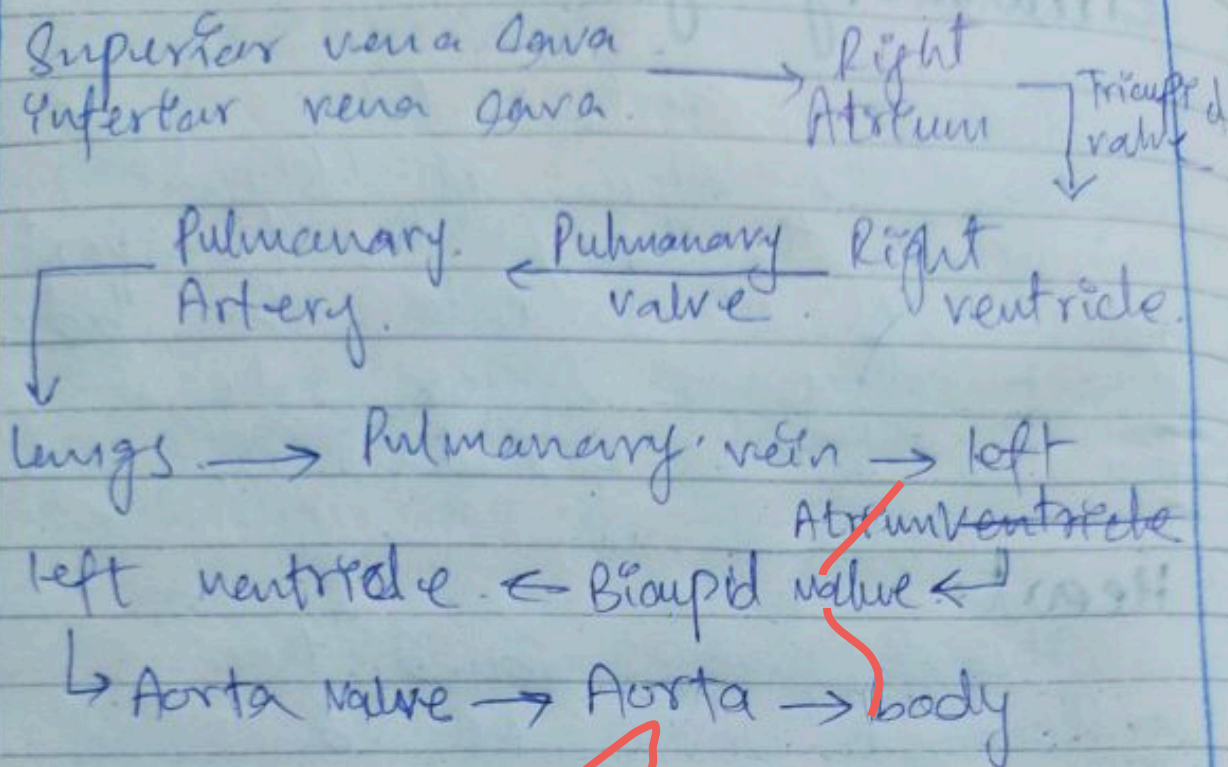 Superior vena cava
Inferior vena cava.
→ Right
Atrium
Tricuspid
valve
Pulmonary. ← Pulmonary Right
Artery. valve. ventricle.
lungs → Pulmonary vein → left
Atrium ventricle
left ventricle ← Bicupid valve ↵
↳ Aorta valve → Aorta → body